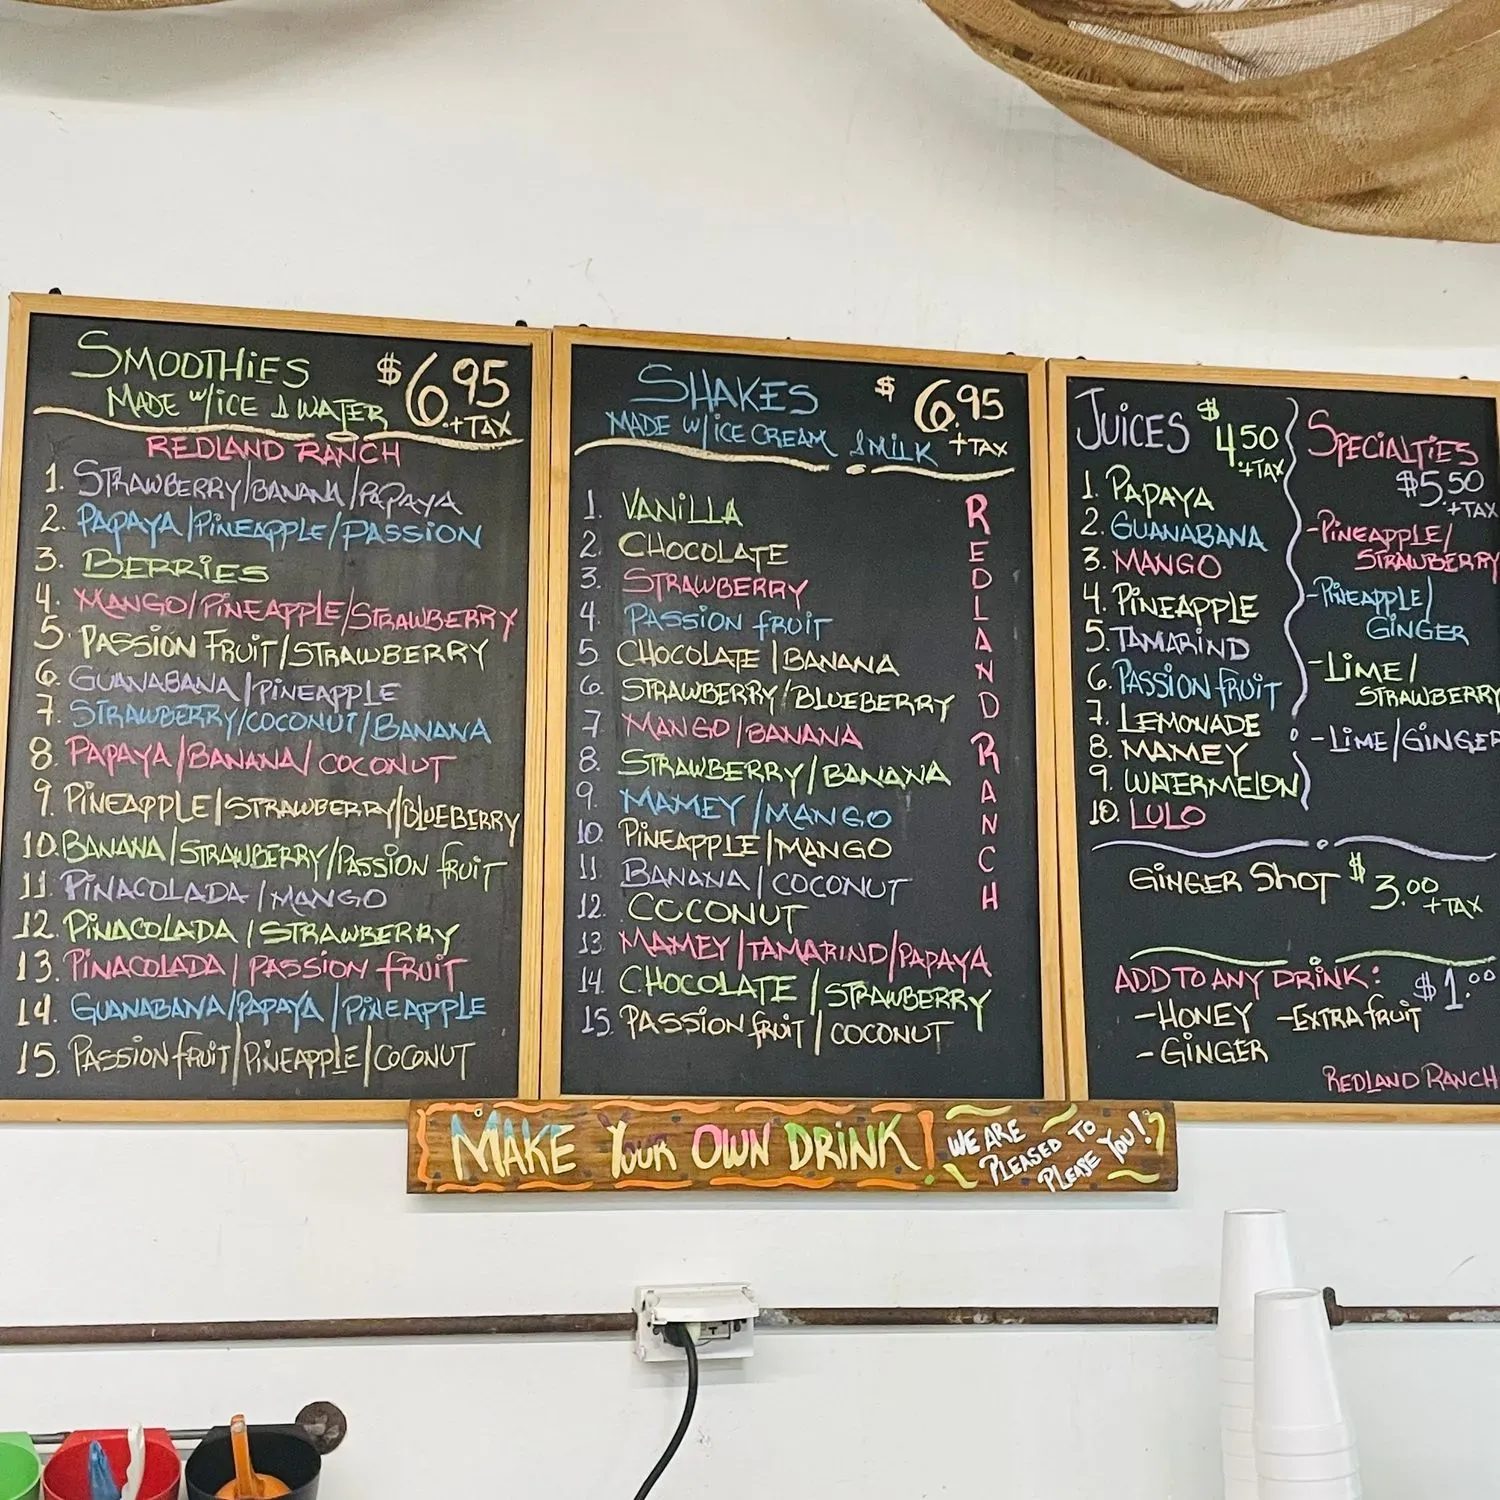 SMOOTHIES $6.95
MADE W/ICE & WATER +TAX
REDLAND RANCH
1. STRAWBERRY/BANANA/PAPAYA
2. PAPAYA/PINEAPPLE/PASSION
3. BERRIES
4. MANGO/PINEAPPLE/STRAWBERRY
5. PASSION FRUIT/STRAWBERRY
6. GUANABANA/PINEAPPLE
7. STRAWBERRY/COCONUT/BANANA
8. PAPAYA/BANANA/COCONUT
9. PINEAPPLE/STRAWBERRY/BLUEBERRY
10. BANANA/STRAWBERRY/PASSION FRUIT
11. PINACOLADA/MANGO
12. PINACOLADA/STRAWBERRY
13. PINACOLADA/PASSION FRUIT
14. GUANABANA/PAPAYA/PINEAPPLE
15. PASSION FRUIT/PINEAPPLE/COCONUT
SHAKES $6.95
MADE W/ICE CREAM & MILK +TAX
1. VANILLA
2. CHOCOLATE
3. STRAWBERRY
4. PASSION FRUIT
5. CHOCOLATE/BANANA
6. STRAWBERRY/BLUEBERRY
7. MANGO/BANANA
8. STRAWBERRY/BANANA
9. MAMEY/MANGO
10. PINEAPPLE/MANGO
11. BANANA/COCONUT
12. COCONUT
13. MAMEY/TAMARIND/PAPAYA
14. CHOCOLATE/STRAWBERRY
15. PASSION FRUIT/COCONUT
REDLAND RANCH
JUICES $4.50
+TAX
1. PAPAYA
2. GUANABANA
3. MANGO
4. PINEAPPLE
5. TAMARIND
6. PASSION FRUIT
7. LEMONADE
8. MAMEY
9. WATERMELON
10. LULO
SPECIALTIES
$5.50
+TAX
-PINEAPPLE/
STRAWBERRY
-PINEAPPLE/
GINGER
-LIME/
STRAWBERRY
-LIME/GINGER
GINGER SHOT $3.00
+TAX
ADD TO ANY DRINK: $1.00
-HONEY -EXTRA FRUIT
-GINGER
REDLAND RANCH
MAKE YOUR OWN DRINK!
WE ARE
PLEASED TO
PLEASE YOU!